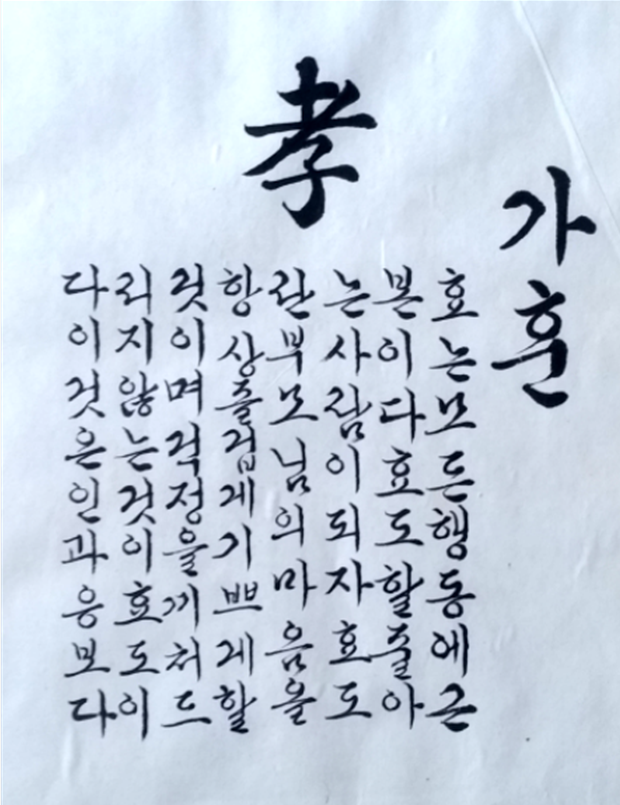 가훈
孝
효는모든행동에근
본이다효도할줄아
는사람이되자효도
란부모님의마음을
항상즐겁게기쁘게할
것이며걱정을끼처드
리지않는것이효도이
다이것은인과응보다